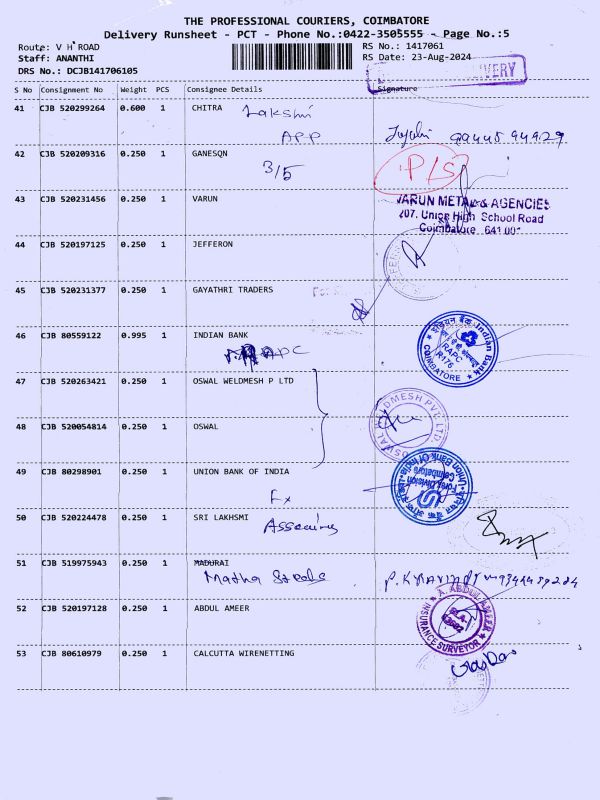 THE PROFESSIONAL COURIERS, COIMBATORE
Delivery Runsheet - PCT - Phone No.:0422-3505555 - Page No.:5
Route: V H ROAD
RS No.: 1417061
Staff: ANANTHI
RS Date: 23-Aug-2024
DRS No.: DCJB141706105
DELIVERY
S No Consignment No Weight PCS Consignee Details Signature
41 CJB 520299264 0.600 1 CHITRA Lakshmi
APP
42 CJB 520209316 0.250 1 GANESQN P/S
3/5
43 CJB 520231456 0.250 1 VARUN
VARUN METAL & AGENCIES
207, Union High School Road
Coimbatore 641 001
44 CJB 520197125 0.250 1 JEFFERON
45 CJB 520231377 0.250 1 GAYATHRI TRADERS
46 CJB 80559122 0.995 1 INDIAN BANK
RAPC
इंडियन बैंक Indian Bank
RAPC
R176
COIMBATORE
47 CJB 520263421 0.250 1 OSWAL WELDMESH P LTD
48 CJB 520054814 0.250 1 OSWAL
OSWAL WELDMESH PVT. LTD.
49 CJB 80298901 0.250 1 UNION BANK OF INDIA
Fx
Union Bank Of India
Forex Division
Coimbatore
50 CJB 520224478 0.250 1 SRI LAKHSMI
51 CJB 519975943 0.250 1 MADURAI
Matha Steels
52 CJB 520197128 0.250 1 ABDUL AMEER
A. ABDUL AMEER
INSURANCE SURVEYOR
53 CJB 80610979 0.250 1 CALCUTTA WIRENETTING